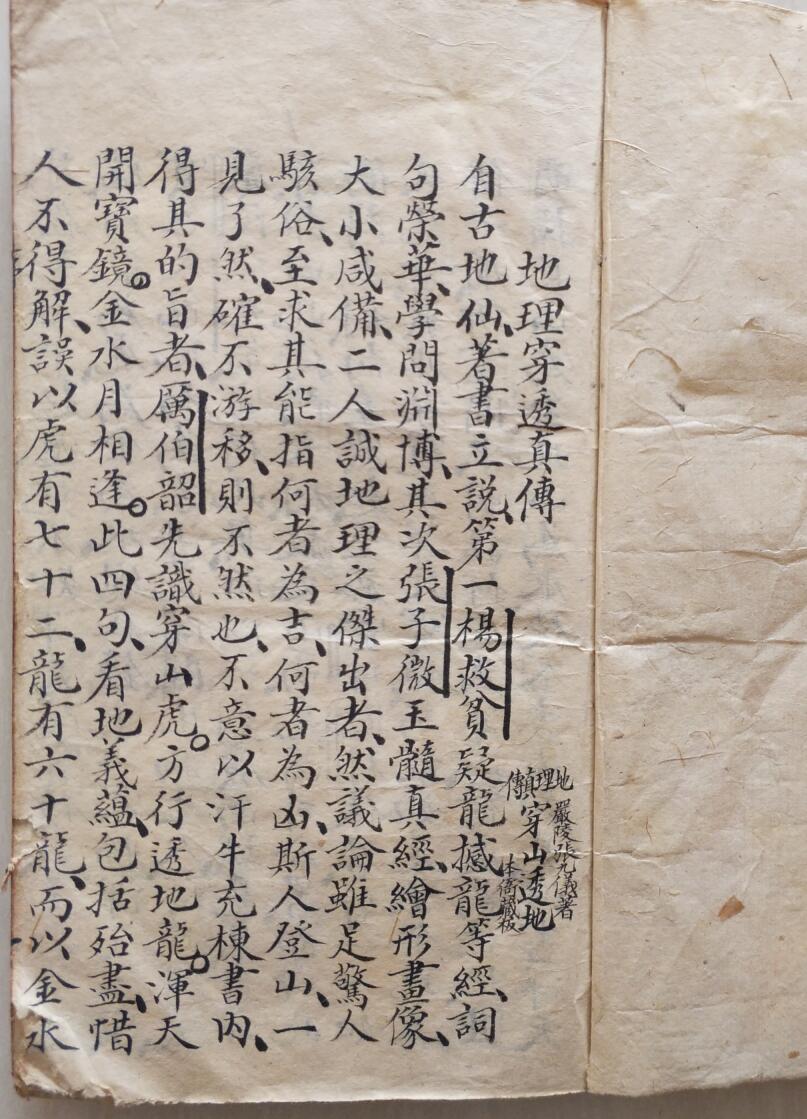 地理穿透真傳
地理真傳
嚴陵張九儀著
穿山透地
本衙藏板
自古地仙、著書立說、第一楊救貧疑龍撼龍等經、詞
句榮華、學問淵博、其次張子微玉髓真經、繪形畫像、
大小咸備、二人誠地理之傑出者、然議論雖足驚人
駭俗、至求其能指何者為吉、何者為凶、斯人登山、一
見了然、確不游移、則不然也、不意以汗牛充棟書內、
得其的旨者、厲伯韶先識穿山虎。方行透地龍。渾天
開寶鏡。金水月相逢。此四句、看地義蘊、包括殆盡、惜
人不得解、誤以虎有七十二、龍有六十龍、而以金水